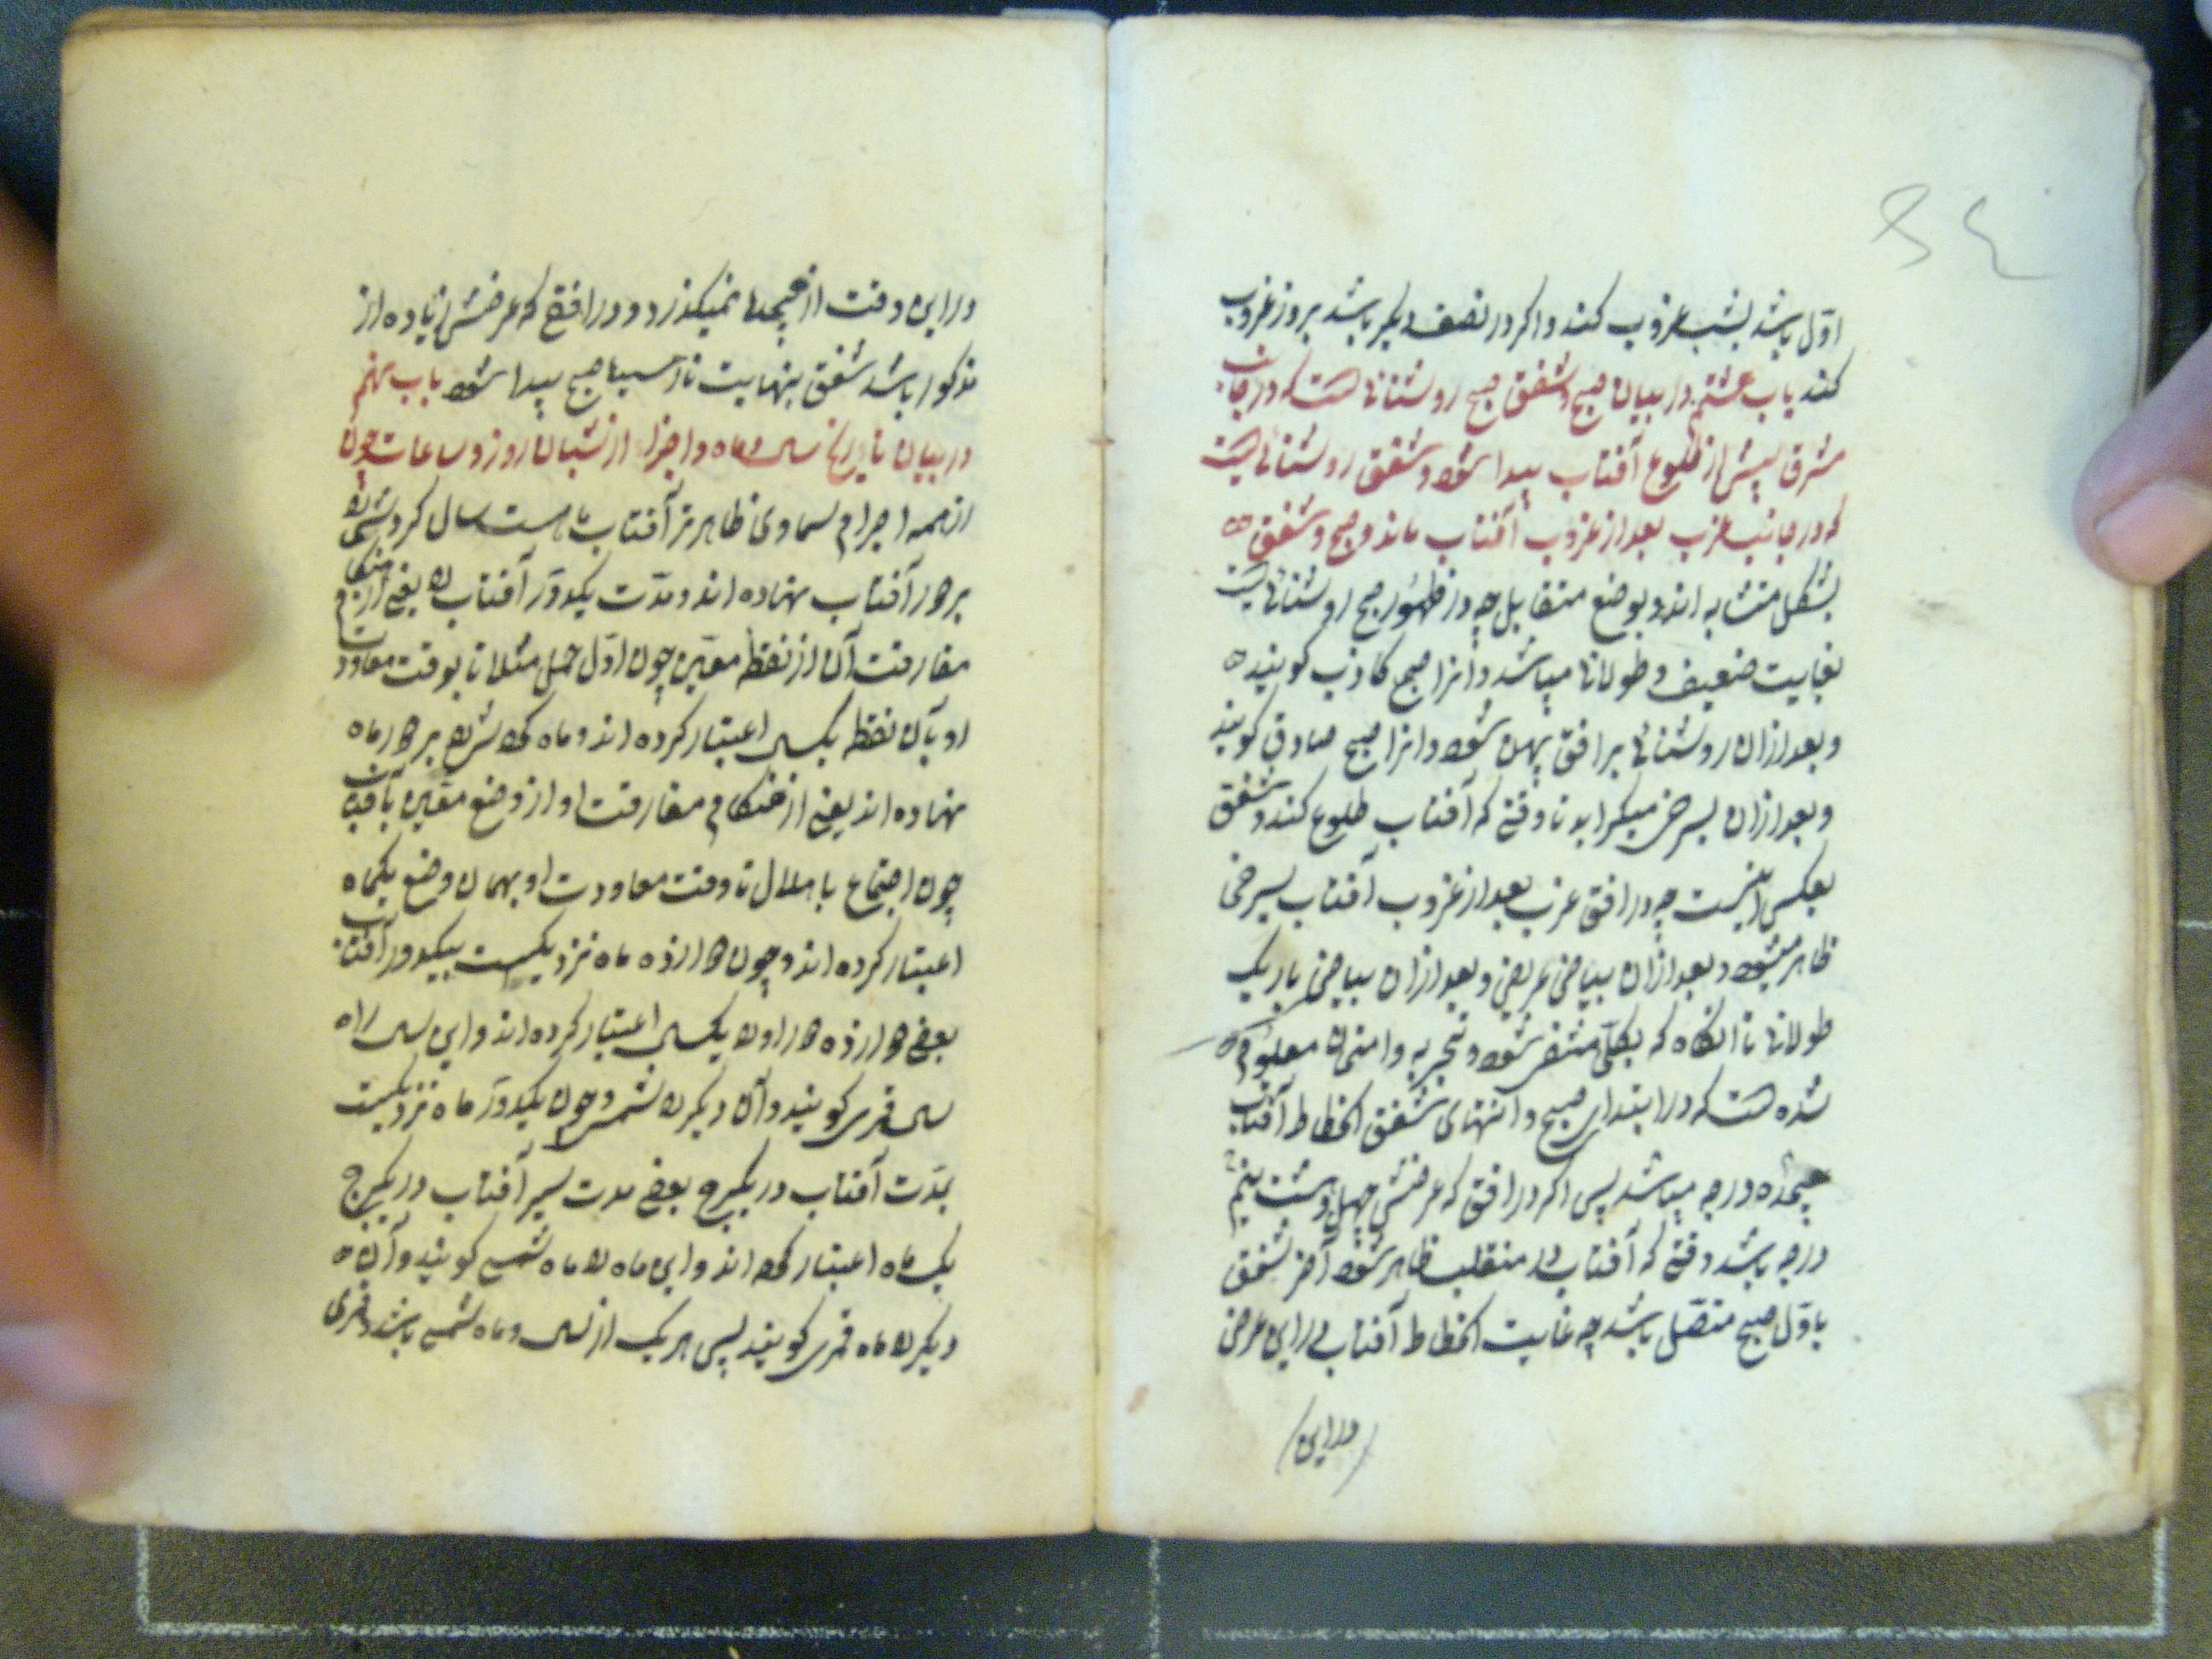 ۳۴
اوّل باشد بشب غروب کند و اکر در نصف دیکر باشد بروز غروب
کند باب هشتم در بیان صبح و شفق صبح روشنائی هست که در جانب
مشرق پیش از طلوع آفتاب پیدا شود و شفق روشنائی است
که در جانب غرب بعد از غروب آفتاب ماند و صبح و شفق
بشکل متشابه اند و بوضع متقابل چه در ظهور صبح روشنائی است
بغایت ضعیف و طولانی میباشد و انرا صبح کاذب کویند
و بعد ازان روشنائی بر افق پهن شود و انرا صبح صادق کویند
و بعد ازان بسرخی میکراید تا وقتی که آفتاب طلوع کند و شفق
بعکس اینست چه در افق غرب بعد از غروب آفتاب سرخی
ظاهر میشود و بعد ازان بیاض عریض و بعد ازان بیاض باریک
طولانی تا انکاه که بکلّی منتفی شود و تجربه و امتحان معلوم
شده هست که در ابتدای صبح و انتهای شفق انحطاط آفتاب
هیجده درجه میباشد پس اکر در افقی که عرضش چهل و هشت نیم
درجه باشد وقتی که آفتاب در منقلب ظاهر شود آخر شفق
باوّل صبح متصّل باشد چه غایت انحطاط آفتاب در این عرض
در این
در این وقت از هیجده نمیکذرد و در افقی که عرضش زیاده از
مذکور باشد شفق بنهایت نارسیده صبح پیدا شود باب نهم
در بیان تاریخ سال و ماه و اجزاء از شبان روز و ساعات چون
از همه اجرام سماوی ظاهرتر آفتاب
بر دور آفتاب نهاده اند و مدّت یکدوَر آفتاب را یعنی از هنکام
مفارقت آن از نقطه معیّن چون اوّل حمل مثلا تا بوقت معاودت
او بآن نقطه یکسال اعتبار کرده اند و ماه بر دور ماه
نهاده اند یعنی از هنکام مفارقت او از وضع معیّن بآفتاب
چون اجتماع یا هلال تا وقت معاودت او بهمان وضع یکماه
اعتبار کرده اند و چون دوازده ماه نزدیکست بیکدور آفتاب
بعضی دوازده دور او را یکسال اعتبار کرده اند و این سال را
سال قمری کویند و آن دیکر را شمسی و چون یکدوَر ماه نزدیکست
بمدّت آفتاب در یکبرج بعضی مدت سیر آفتاب در یکبرج
یک ماه اعتبار کرده اند و این ماه را ماه شمسی کویند و آن
دیکر را ماه قمری کویند پس هر یک از سال و ماه شمسی باشد و قمری